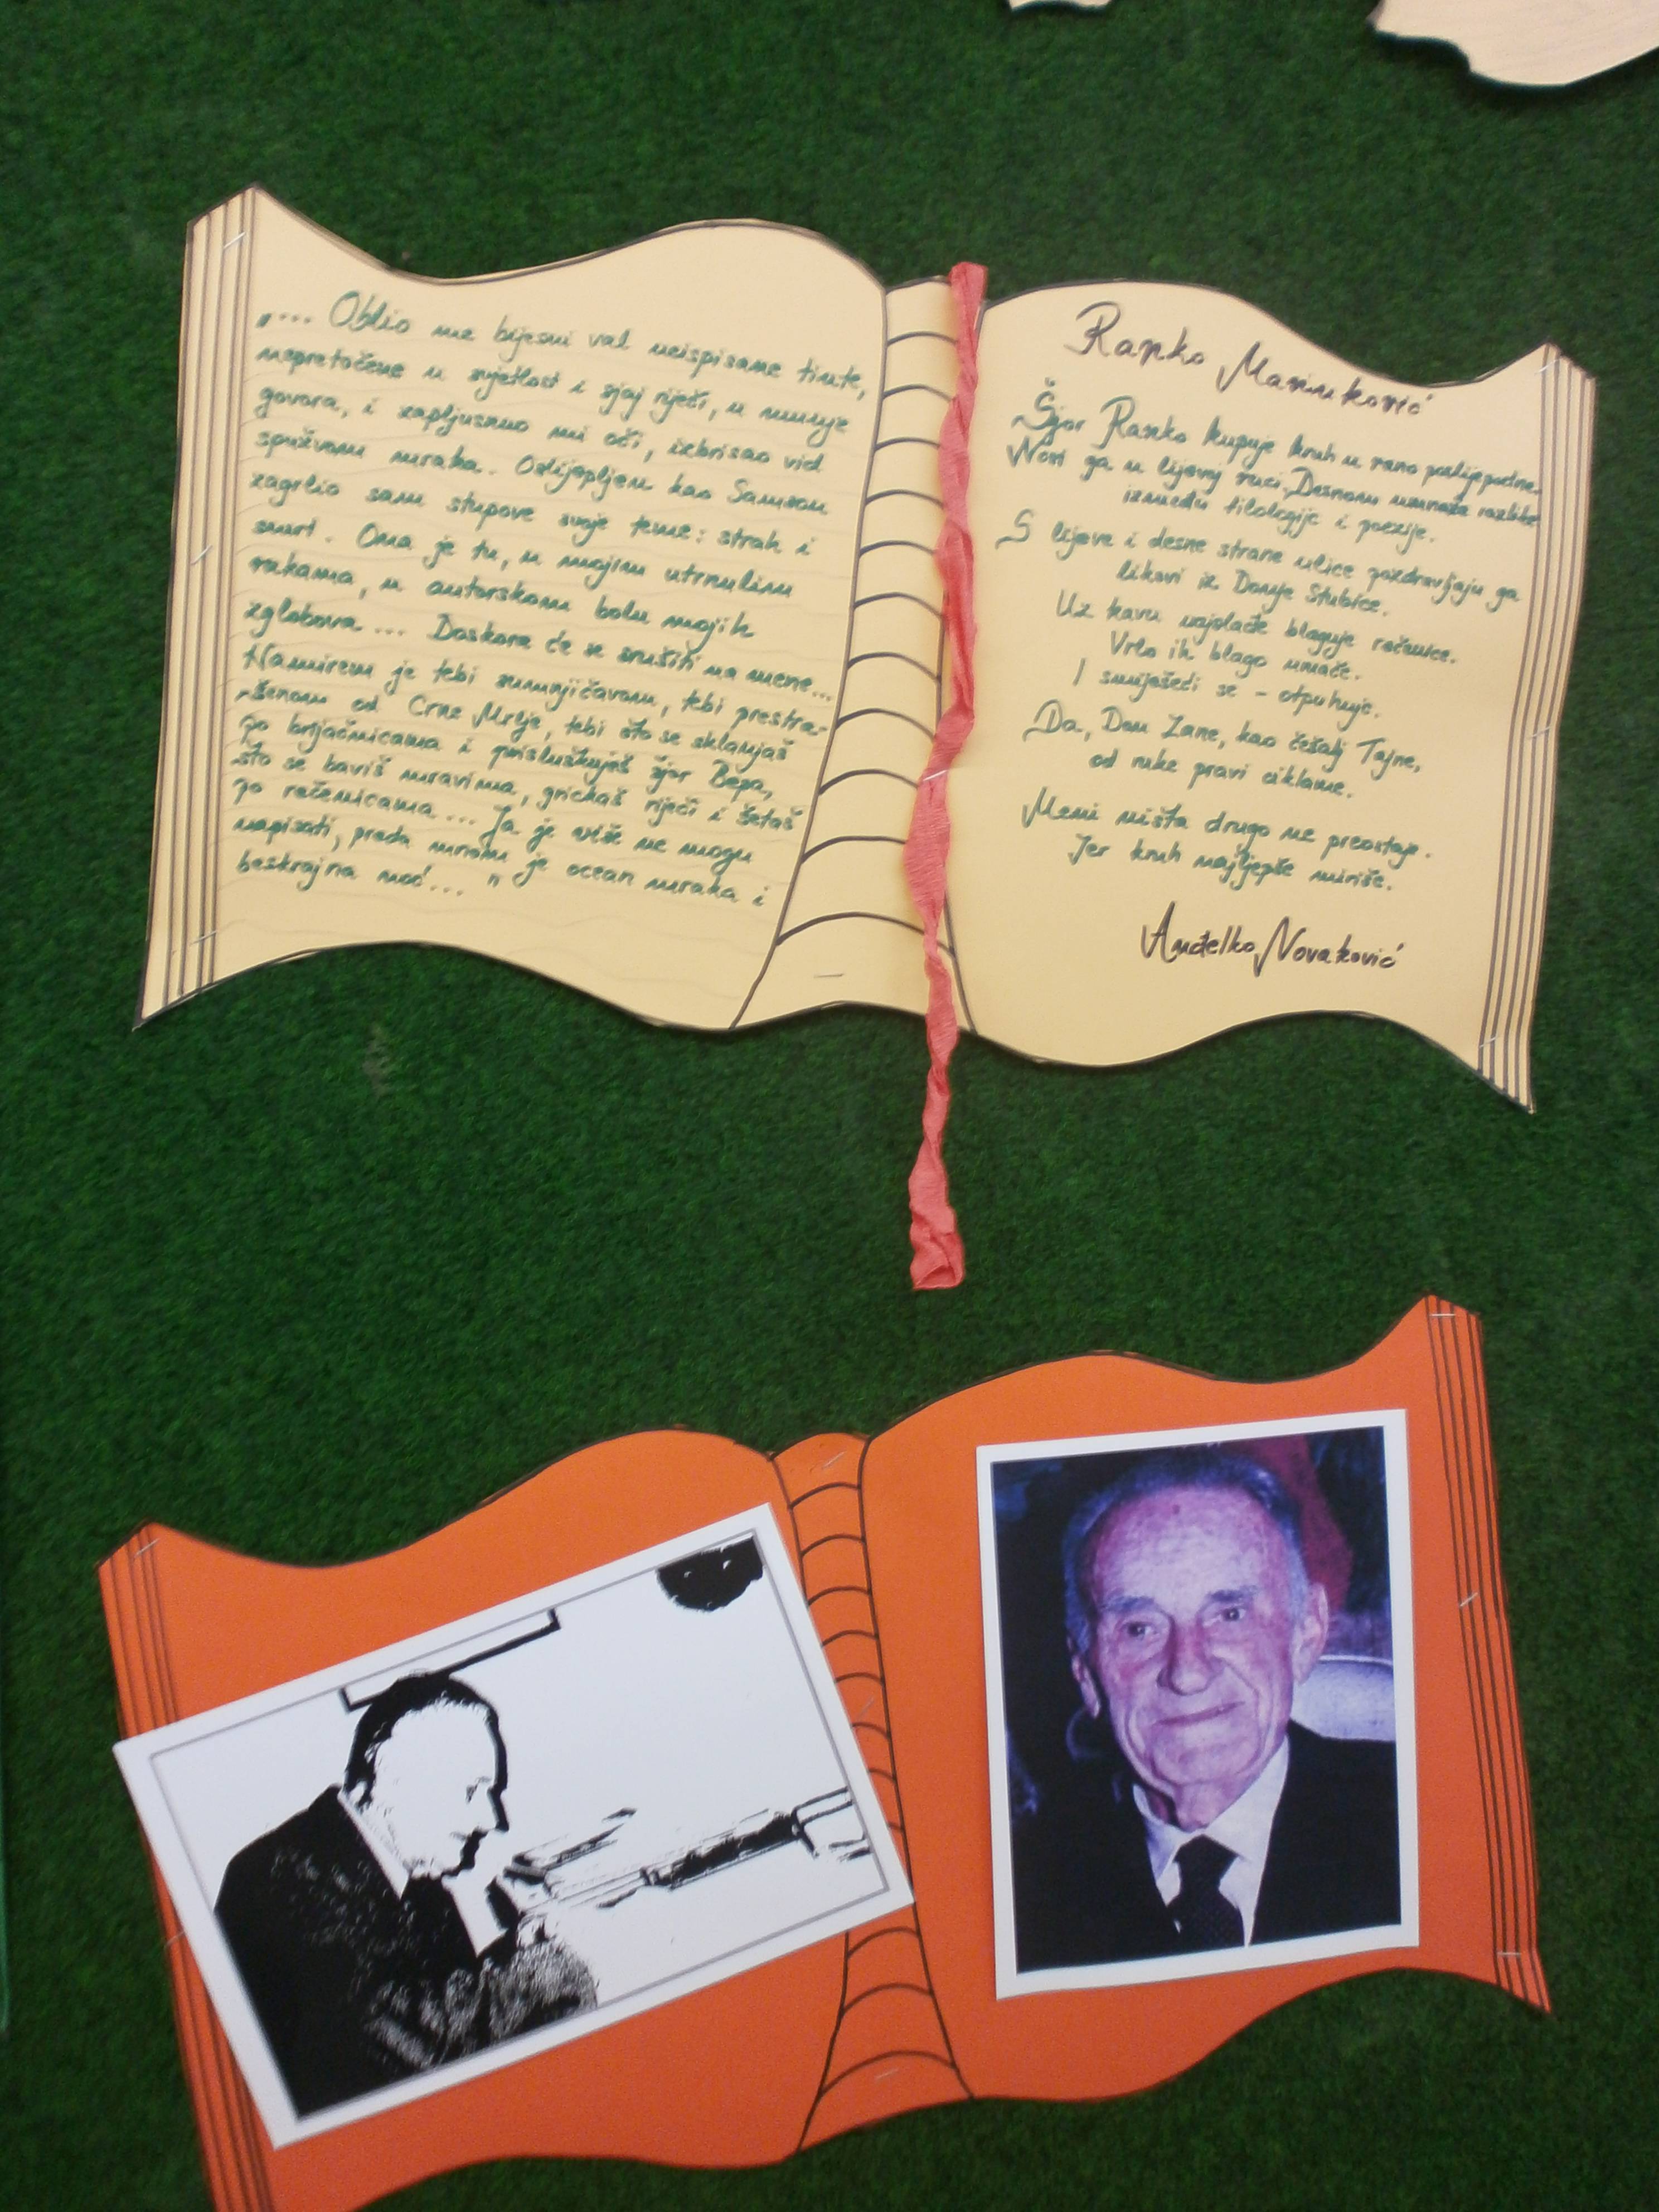 „... Oblio me bijesni val neispisane tinte,
nepretočene u svjetlost i sjaj riječi, u munje
govora, i zapljusnuo mi oči, izbrisao vid
spužvom mraka. Oslijepljen kao Samson
zagrlio sam stupove svoje teme: strah i
smrt. Ona je tu, u mojim utrnulim
rukama, u autorskom bolu mojih
zglobova ... Doskora će se srušiti na mene...
Namirem je tebi sumnjičavom, tebi prestra-
šenom od Crne Mrlje, tebi što se sklanjaš
po brijačnicama i prisluškuješ šjor Bepa,
što se baviš mravima, grickaš riječi i šetaš
po rečenicama ... Ja je više ne mogu
napisati, preda mnom je ocean mraka i
beskrajna moć... "
Ranko Marinković
Šjor Ranko kupuje kruh u rano poslijepodne.
Nosi ga u lijevoj ruci. Desnom umnaža razlike
između filologije i poezije.
S lijeve i desne strane ulice pozdravljaju ga
likovi iz Donje Stubice.
Uz kavu najslađe blaguje rečenice.
Vrlo ih blago umače.
I smiješeći se - otpuhuje.
Da, Don Zane, kao češalj Tajne,
od ruke pravi ciklame.
Meni ništa drugo ne preostaje.
Jer kruh najljepše miriše.
Anđelko Novaković